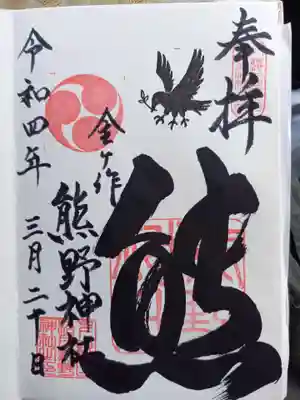 奉拝
熊
金ヶ作
熊野神社
令和四年
三月二十日